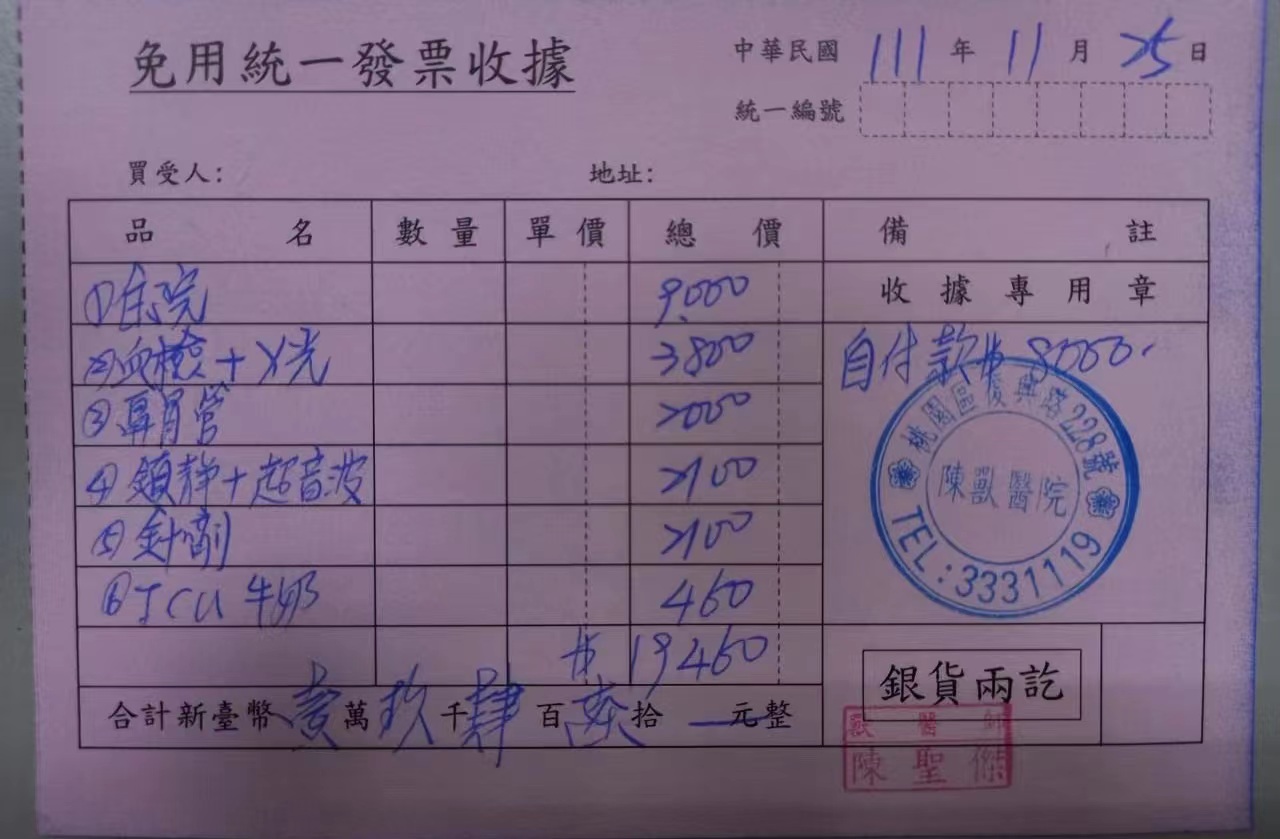 免用統一發票收據
中華民國 111 年 11 月 25 日
統一編號
買受人：
地址：
品名 數量 單價 總價 備註
①住院 9,000 收據專用章
②血檢+X光 3800 自付款$ 8000.
③鼻胃管 2000
④鎮靜+超音波 2100
⑤針劑 2100
⑥ICU 牛奶 460
$ 19460
合計新臺幣壹萬玖千肆百陸拾一元整
桃園區復興路228號
陳獸醫院
TEL:3331119
銀貨兩訖
獸醫師
陳聖傑